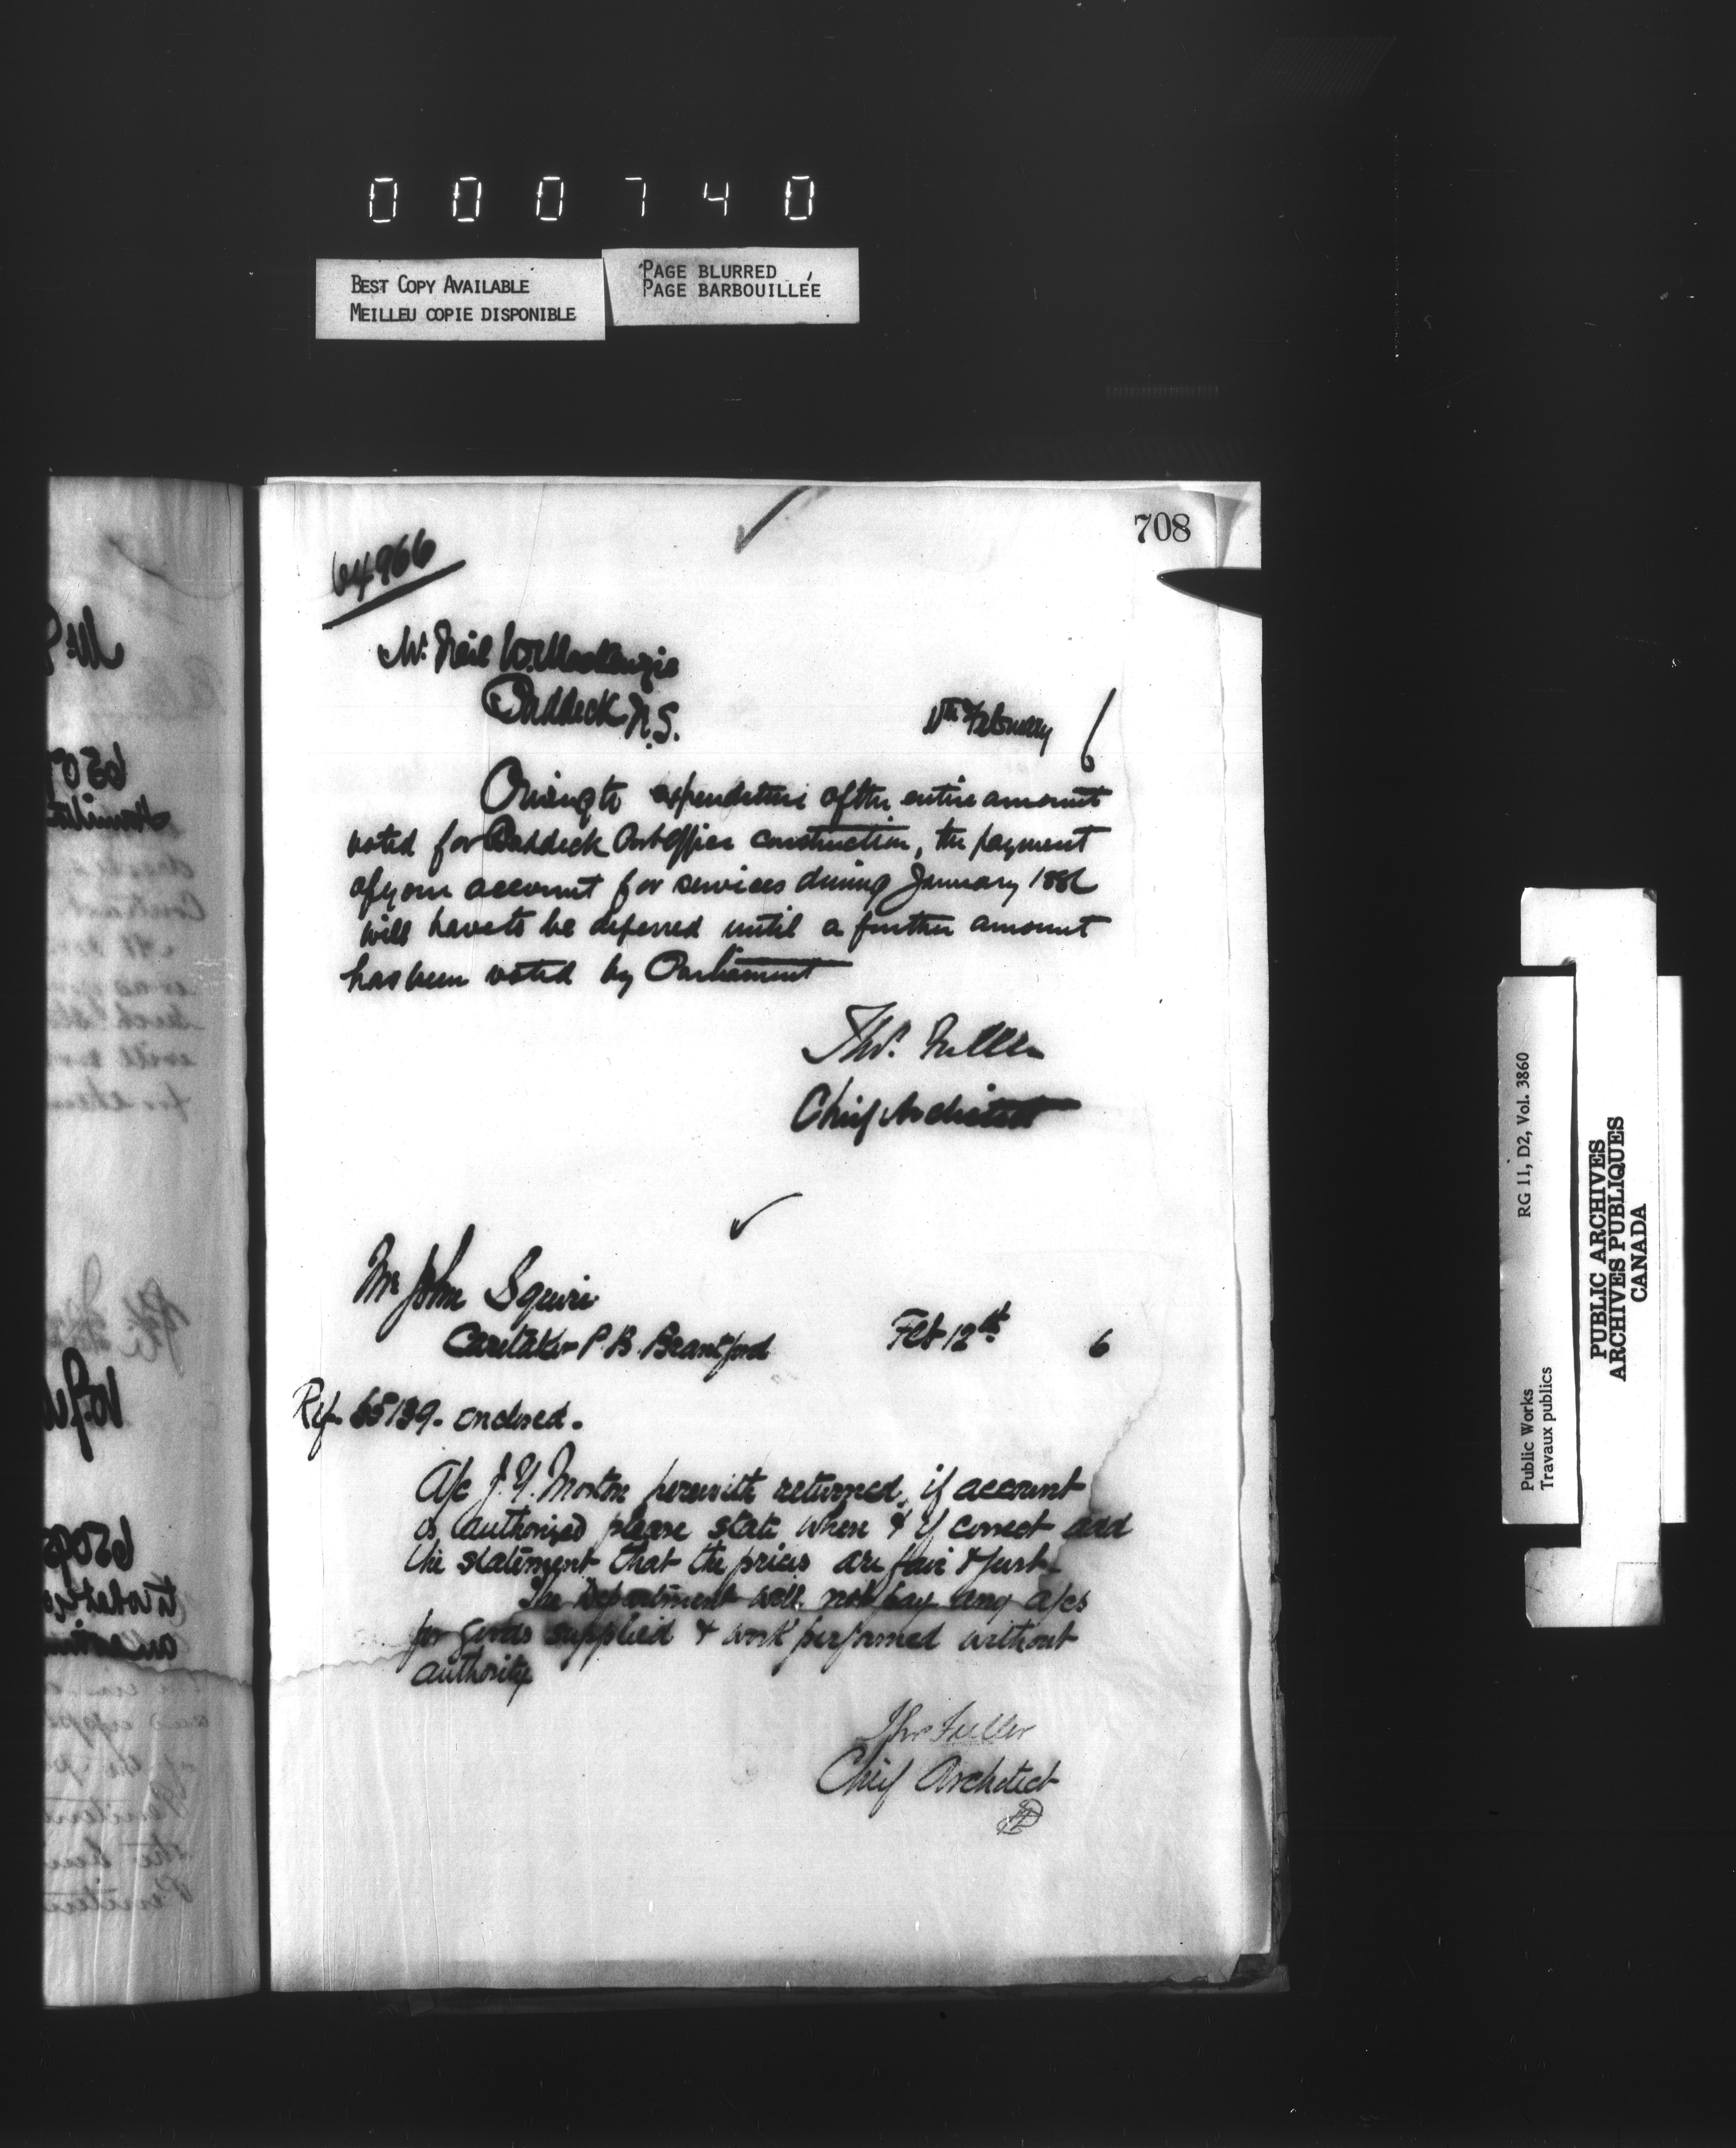 000740
BEST COPY AVAILABLE
MEILLEU COPIE DISPONIBLE
PAGE BLURRED
PAGE BARBOUILLÉE
708
64966
Mr. Neil W. MacKenzie
Baddeck N.S.
11th February 6
Owing to expenditure of the entire amount
voted for Baddeck Post Office construction, the payment
of your account for services during January 1886
will have to be deferred until a further amount
has been voted by Parliament
Thos. Fuller
Chief Architect
Mr John Squire
Caretaker P. B. Brantford
Feb 12th 6
Ref. 65139. enclosed.
A/c J. Y. Morton herewith returned, if account
is authorized please state when & if correct add
the statement that the prices are fair & just.
The Department will not pay any a/cs
for goods supplied & work performed without
authority
Thos Fuller
Chief Architect
RG 11, D2, Vol. 3860
Public Works
Travaux publics
PUBLIC ARCHIVES
ARCHIVES PUBLIQUES
CANADA